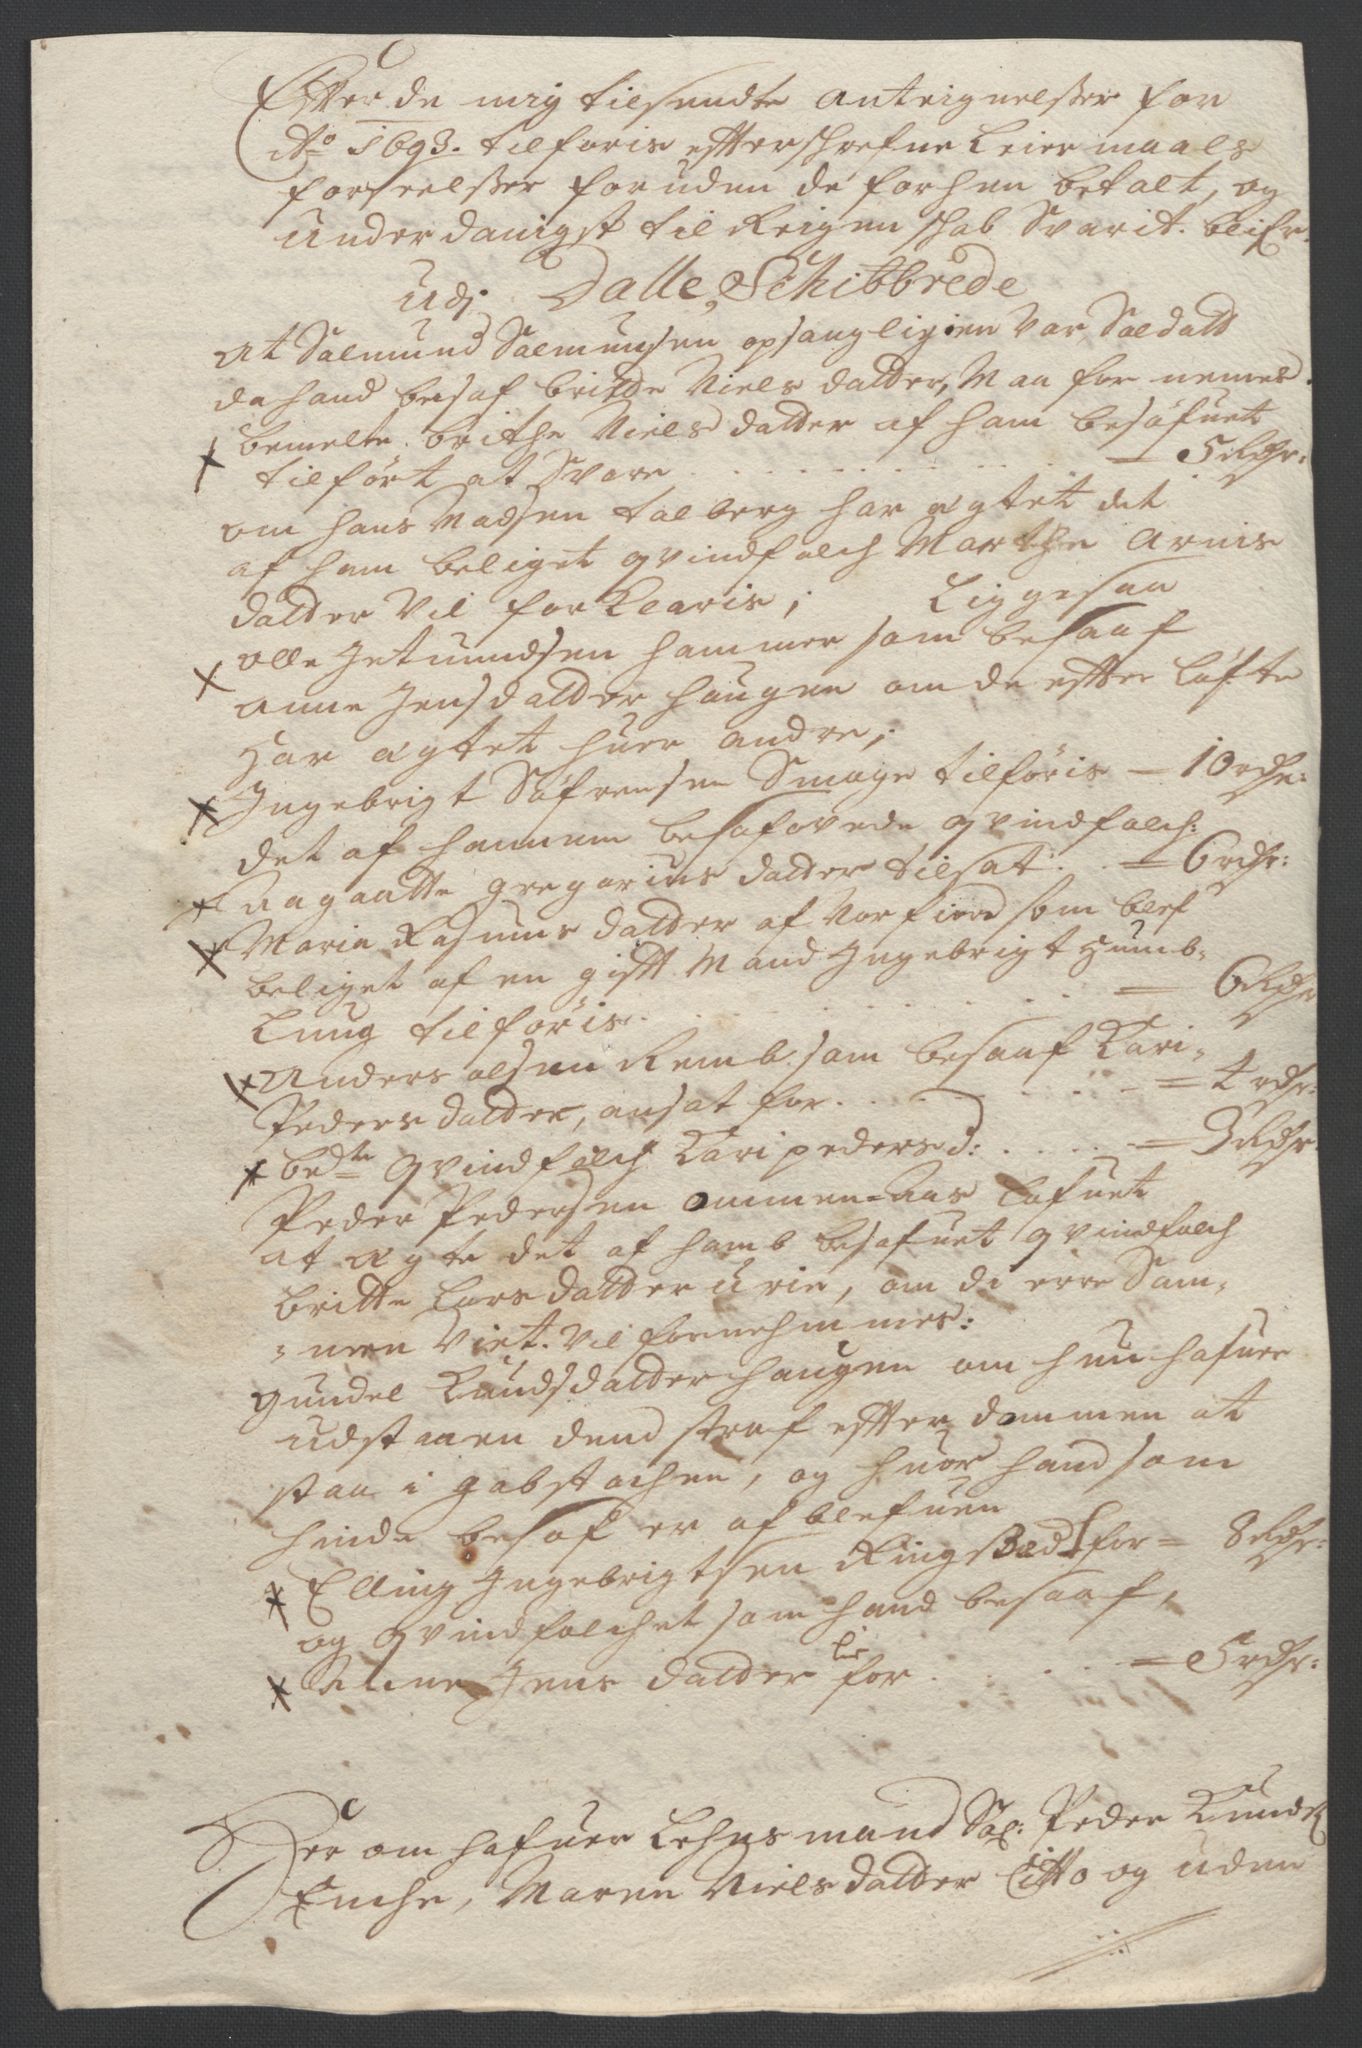 Effter de mig tilsendte Anteignelsser for
Ao 1693. tilføris efterschrefne Leiermaals
forseelsser foruden de forhen betalt, og
underdanigst til Reigenschab Svarit. blifr.
udj. Dalle Schibbrede
At Salmund Salmunsen opsangligien Var Soldatt
da hand besof britte Niels datter, Maa for nemes.
bemelte. brithe Niels datter af ham besøfuet
tilført at Svare . . . . . . . . = 5 Rdr:
om hans Madsen talberg har ægtet det
af ham beliget qvindfolch Marthe Arnis
datter Vil forklaris; Liggesaa
olle Jetmundsen hammer som besaaf
anne Jensdatter haugen om de effter løfte
har ægtet huer andre;
Ingebrigt Søfrensen Smage tilføris – 10 rdr:
det af hannem besofvede qvindfolch:
Aagaatte gregorius datter tilsat . . = 6 rdr:
Maria Rasmus datter af Norfiord som blef
beliget af en gifft Mand Ingebrigt humb-
Lung tilføris . . . . . . . = 6 Rdr
Anders olsen Remb. som besaaf Kari-
Peders datter, ansat for . . . . . . = 4 rdr:
bedte qvindfolch Kari peders d: . . . . = 3 Rdr.
Peder Pedersen ommen-Aas lofuet
at ægte det af hamb besofuet qvindfolch
britte Lars datter urie, om di erre Sam-
-men Viet. vil fornehmmes:
gundel Knudsdatter haugen om hun hafuer
udstaaen dend straf effter dommen at
staa i gabstochen, og huor hand som
hinde besof er af blefuen
Elling Ingebrigtsen Ringstad for = 8 Rdr:
og qvindfolchet som hand besaaf,
Anne Jens datter Lie for . . . . = 5 rdr:
Her om hafuer Lehnsmand Sal: Peder Knuds
Enche, Maren Niels datter Citto og uden